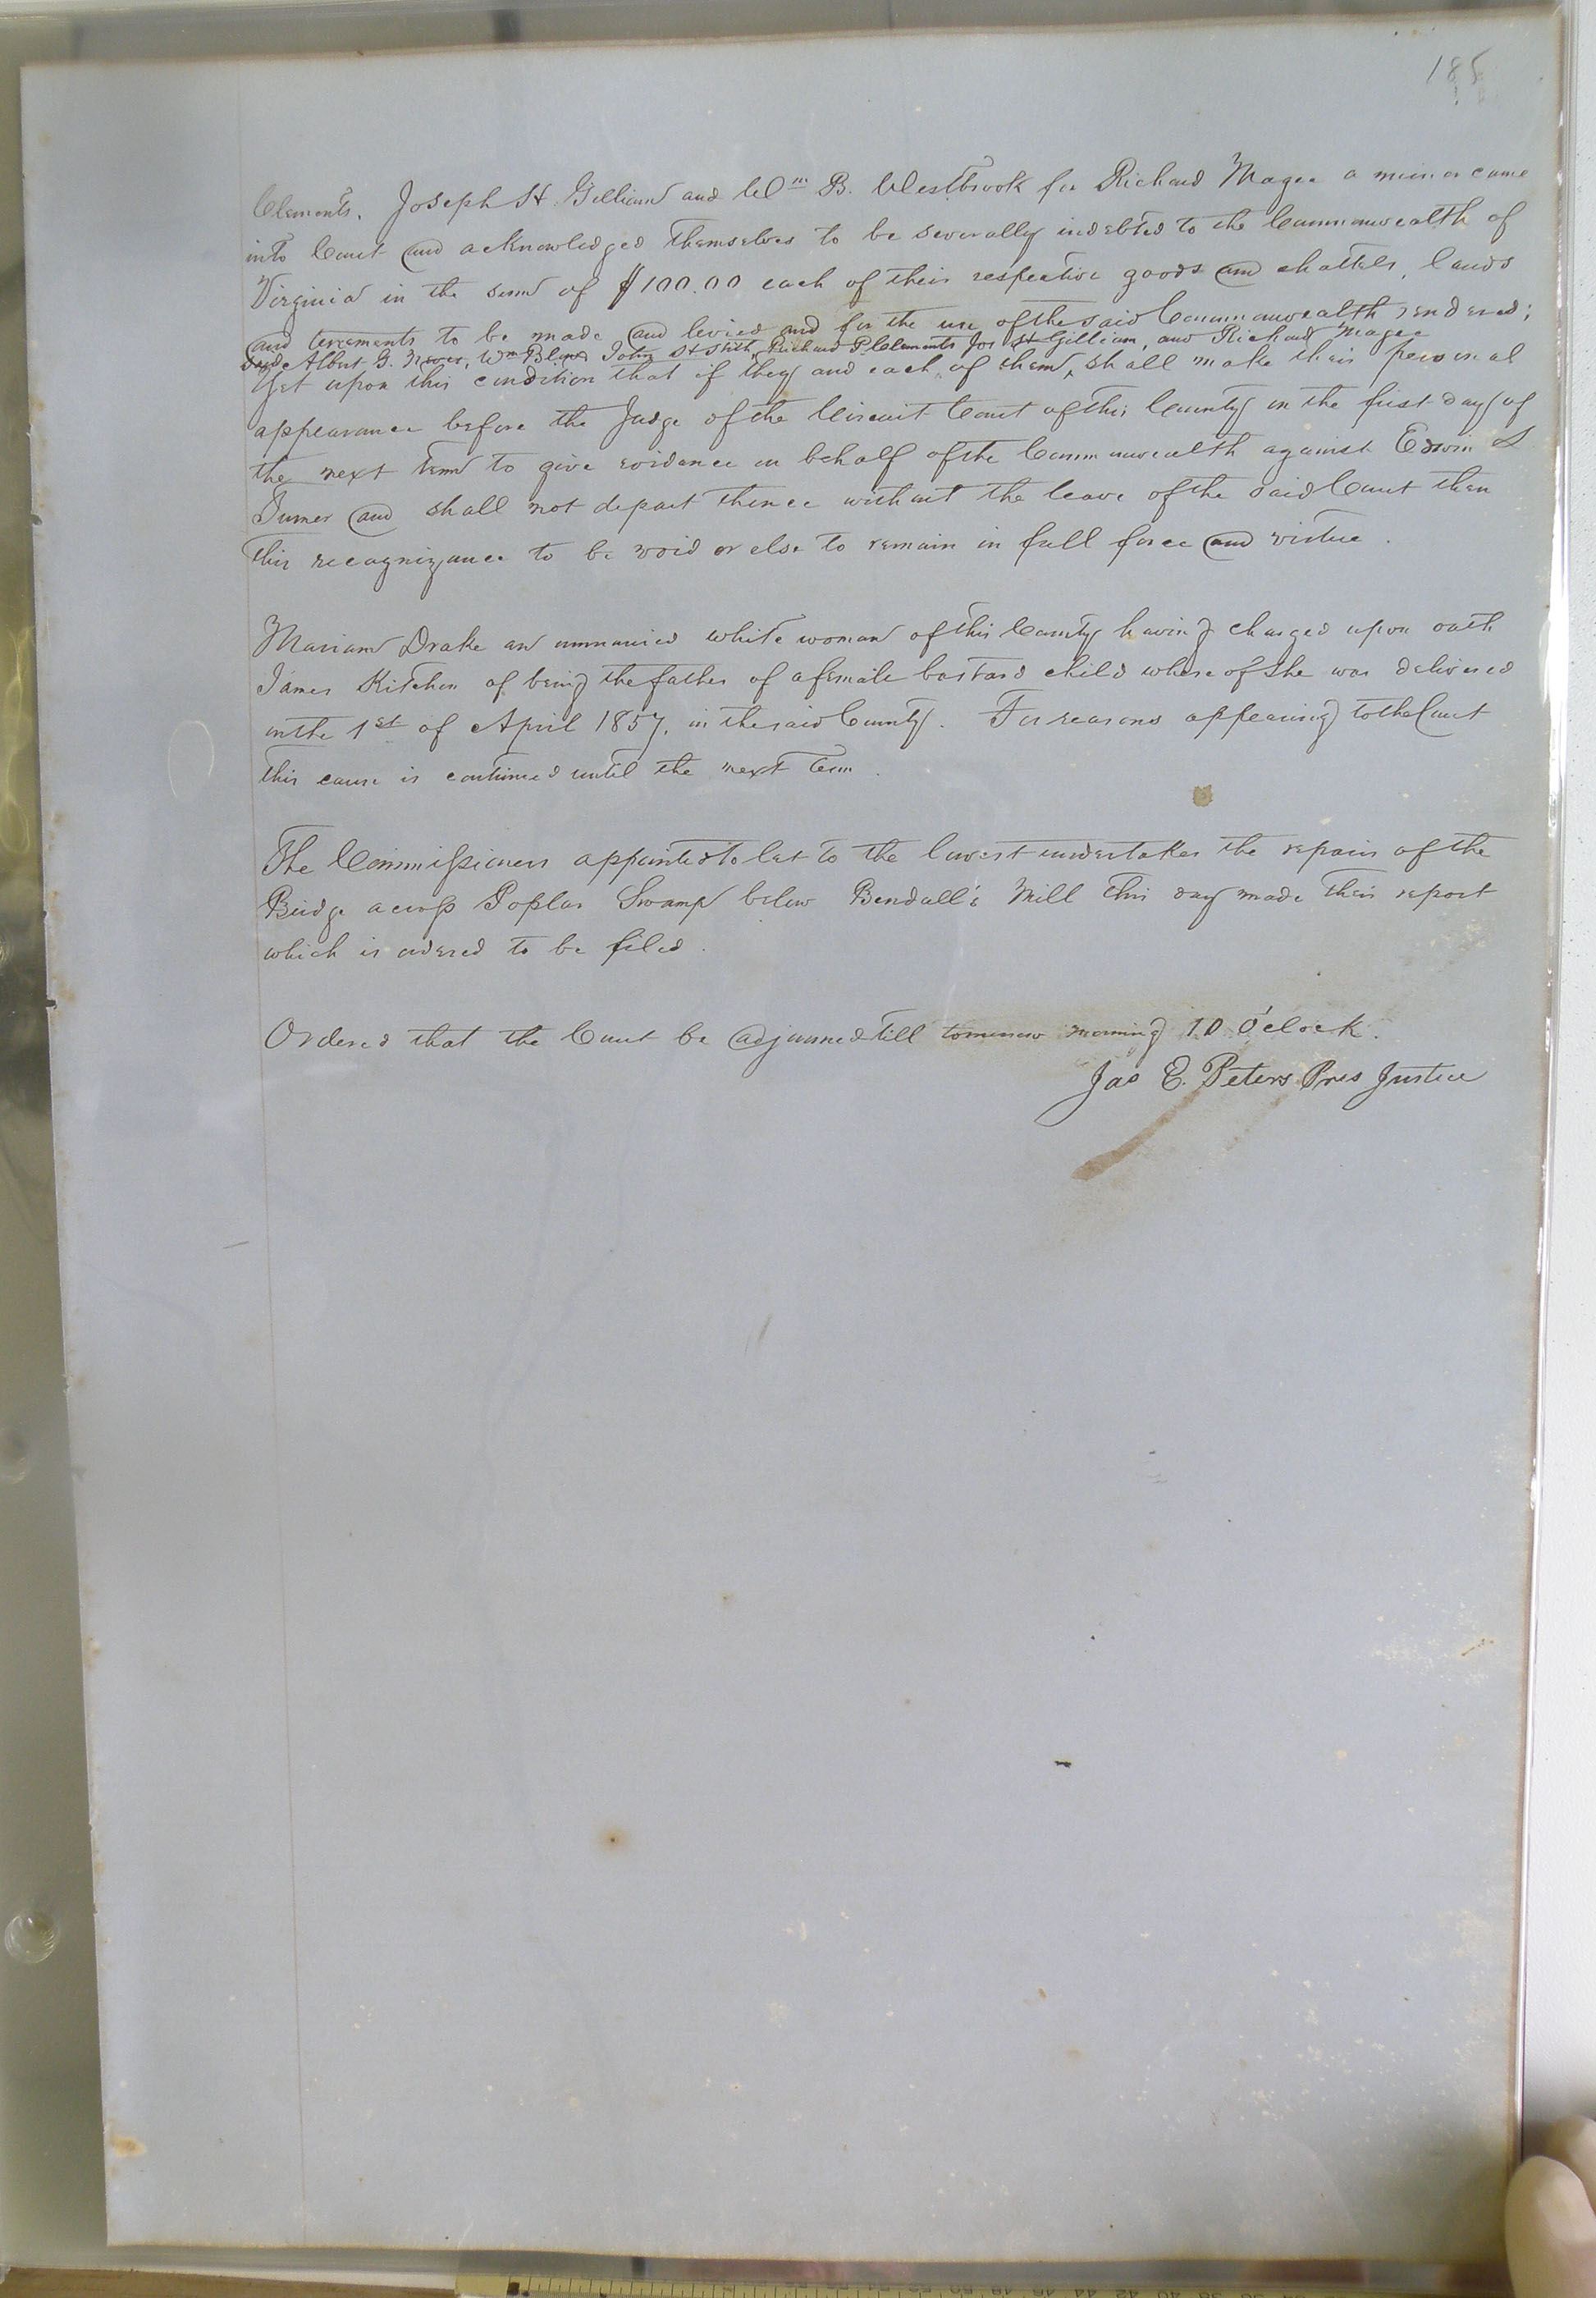 185
Clements, Joseph H. Gilliam and Wm B. Westbrook for Richard Magee a minor came
into Court and acknowledged themselves to be severally indebted to the Commonwealth of
Virginia in the sum of $100.00 each of their respective goods and chattels, lands
and tenements to be made and levied and for the use of the said Commonwealth rendered;
said Albert G. Wm Blow John H Stith, Richard P Clements Jos H Gilliam, and Richard Magee
Yet upon this condition that if they and each of them, shall make their personal
appearance before the Judge of the Circuit Court of this County on the first day of
the next term to give evidence on behalf of the Commonwealth against Edwin S
Turner and shall not depart thence without the leave of the said Court then
this recognizance to be void or else to remain in full force and virtue.
Mariam Drake an unmarried white woman of this County having charged upon oath
James Kitchen of being the father of a female bastard child whereof she was delivered
on the 1st of April 1857, in the said County. For reasons appearing to the Court
this cause is continued until the next Term.
The Commissioners appointed to let to the lowest undertaker the repairs of the
Bridge across Poplar Swamp below Bendall's Mill this day made their report
which is ordered to be filed.
Ordered that the Court be adjourned till tomorrow morning 10 O'clock.
Jas E. Peters Pres Justice